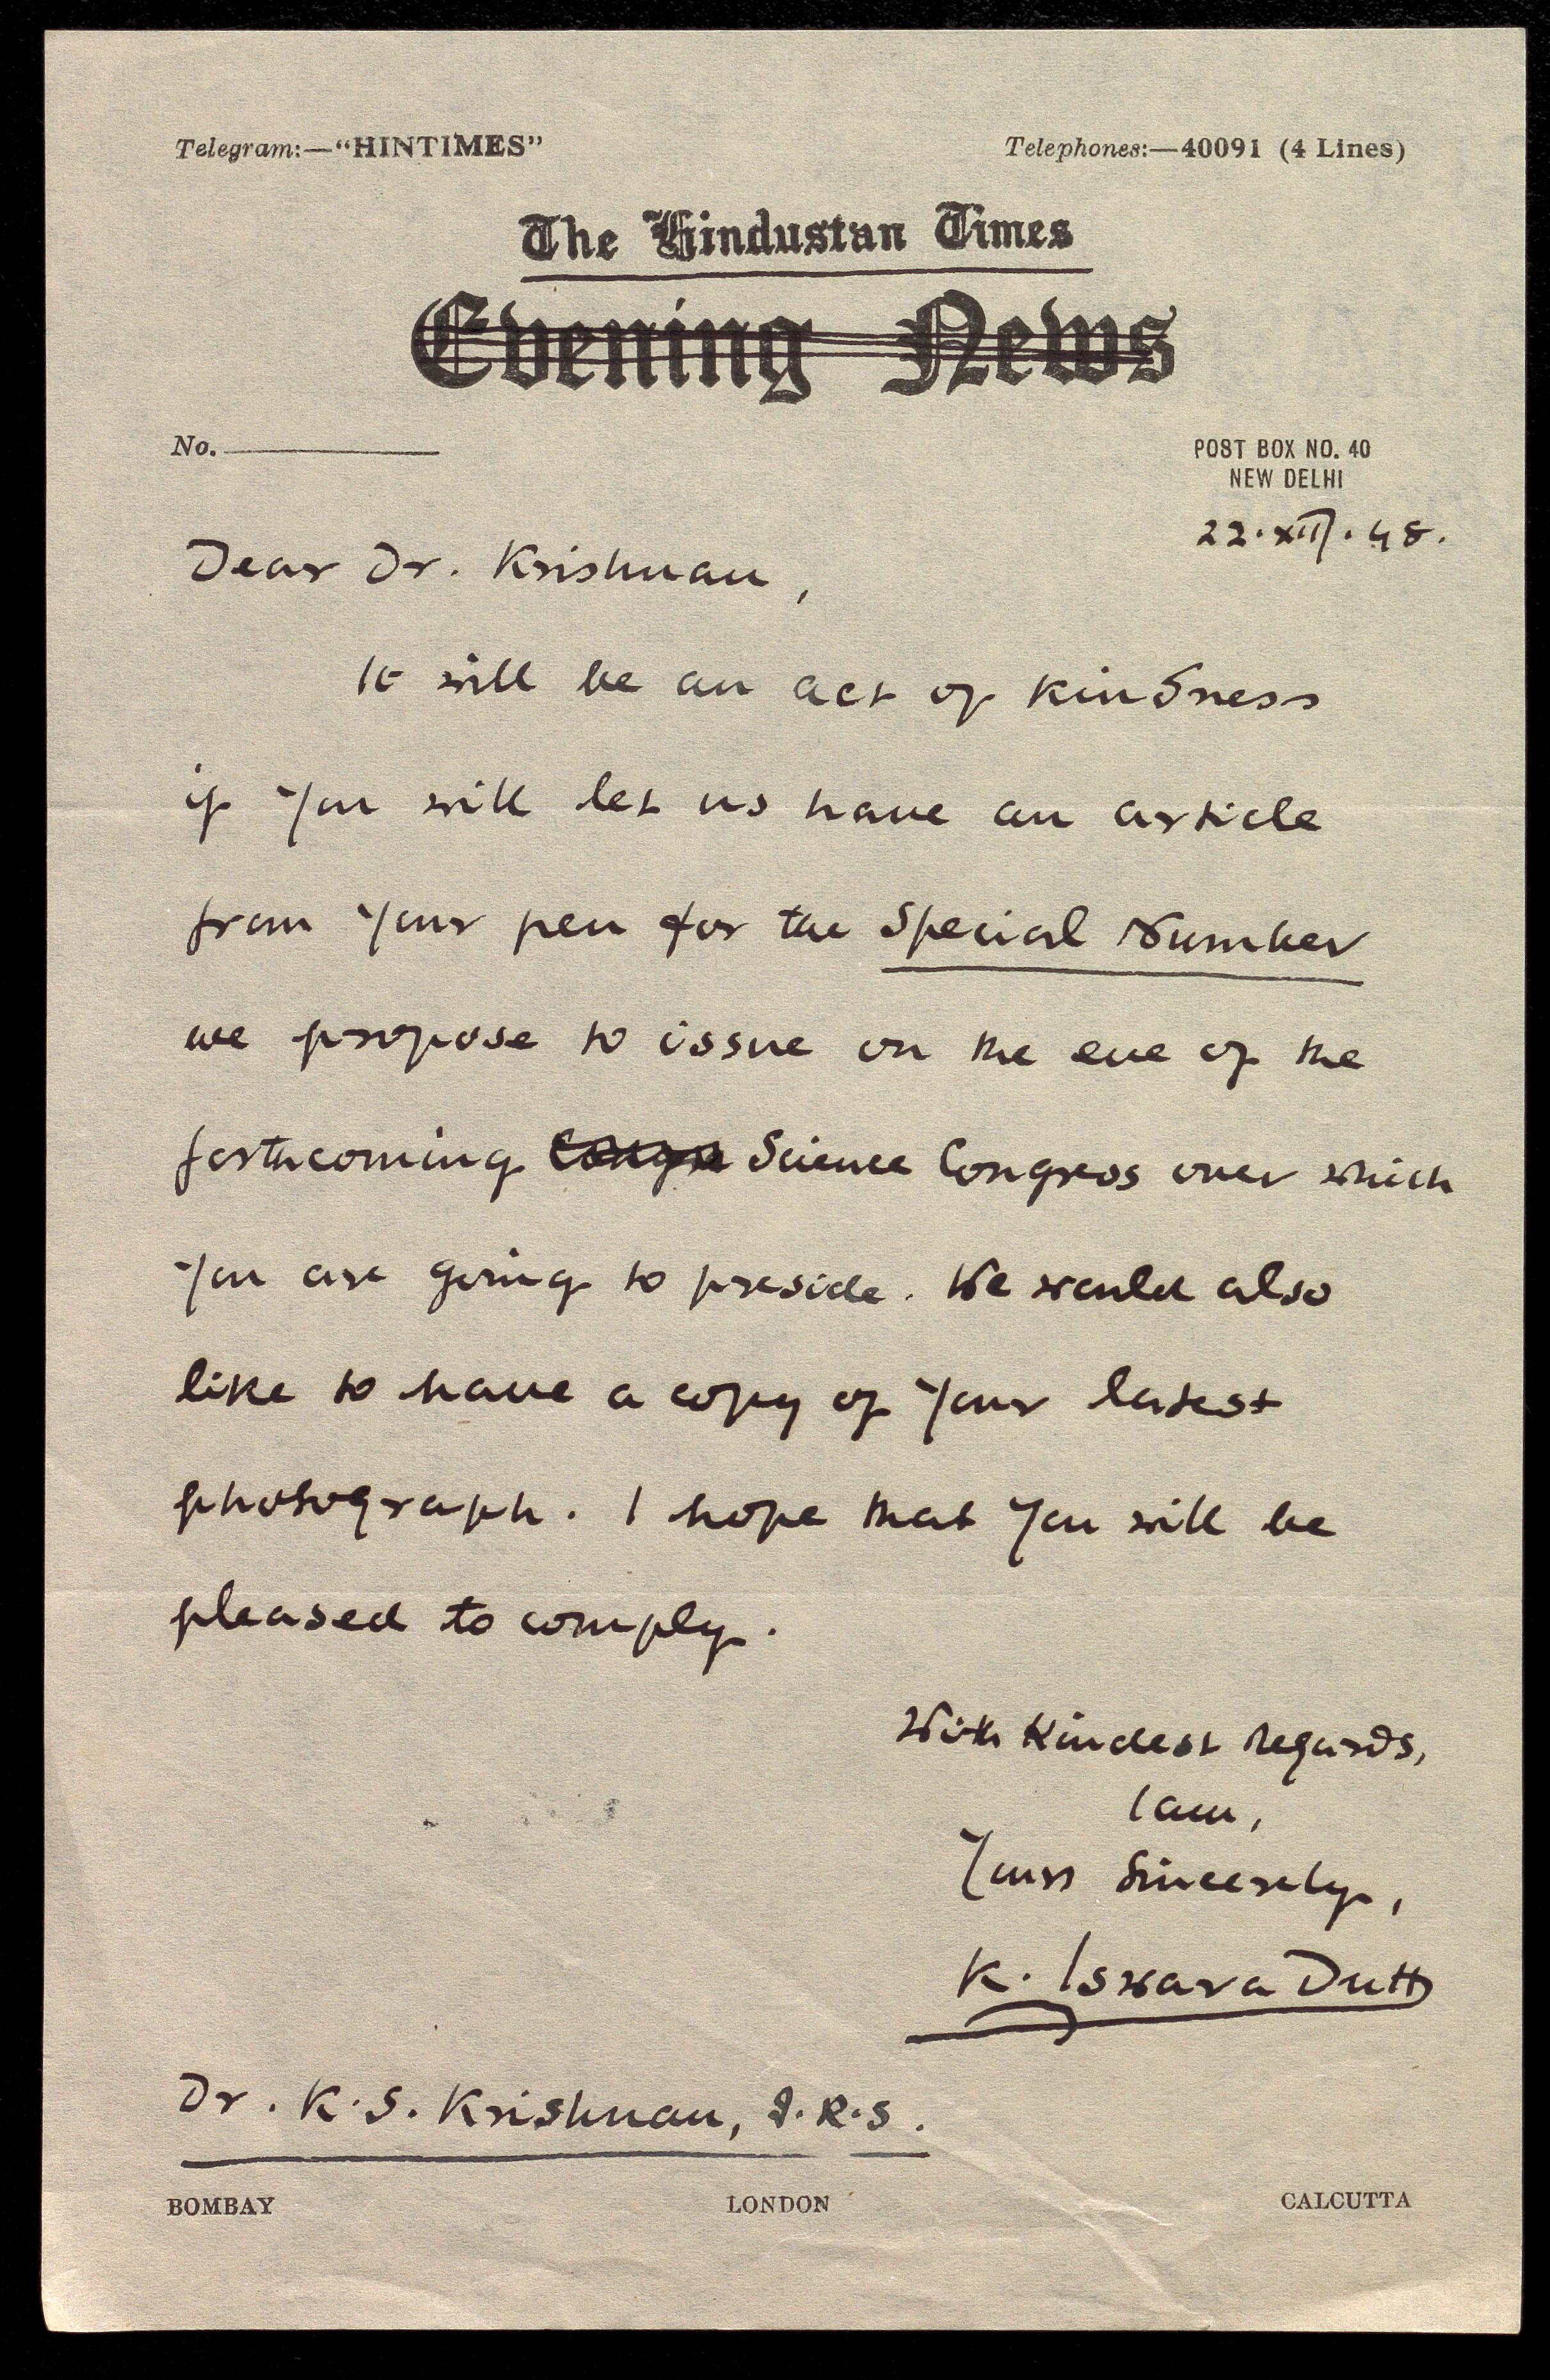 Telegram:—"HINTIMES"
Telephones:—40091 (4 Lines)
The Hindustan Times
Evening News
No.
POST BOX NO. 40
NEW DELHI
22.XII.48.
Dear Dr. Krishnan,
It will be an act of kindness
if you will let us have an article
from your pen for the Special Number
we propose to issue on the eve of the
forthcoming Science Congress over which
you are going to preside. We would also
like to have a copy of your latest
photograph. I hope that you will be
pleased to comply.
With kindest regards,
I am,
Yours sincerely,
K. Iswara Dutt
Dr. K.S. Krishnan, F.R.S.
BOMBAY
LONDON
CALCUTTA